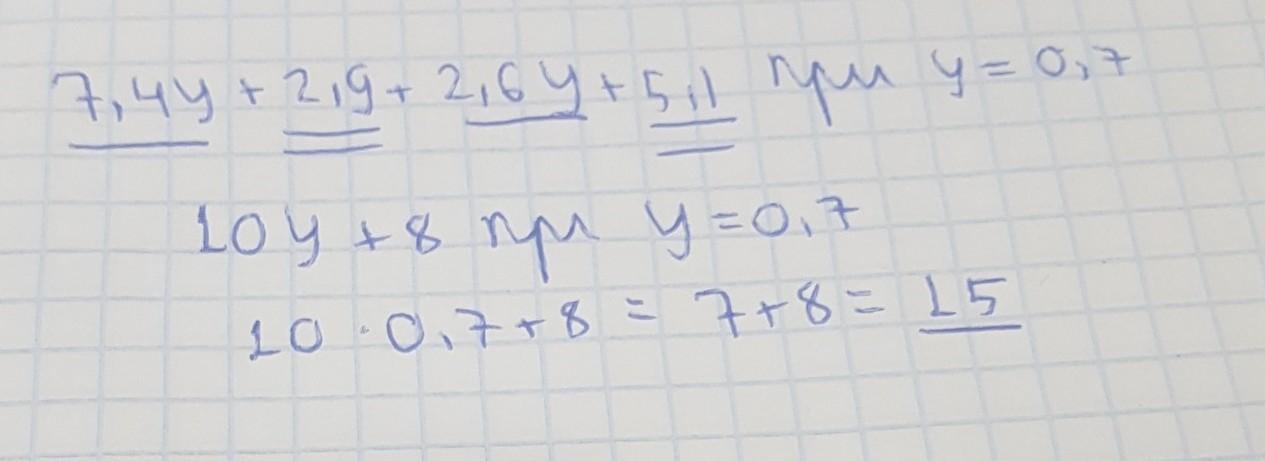 7,4y + 2,9 + 2,6y + 5,1 при y = 0,7
10y + 8 при y = 0,7
10 · 0,7 + 8 = 7 + 8 = 15